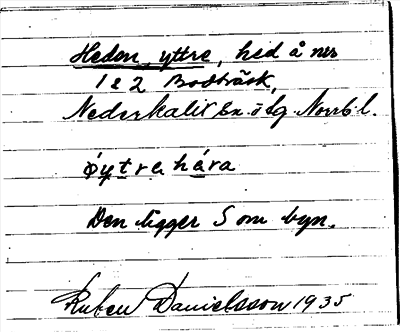 Heden, yttre, hed å nrs
1 & 2 Bodträsk,
Nederkalix sn. ö. lg. Norrb. l.
öytre hára
Den ligger S om byn.
Ruben Danielsson 1935